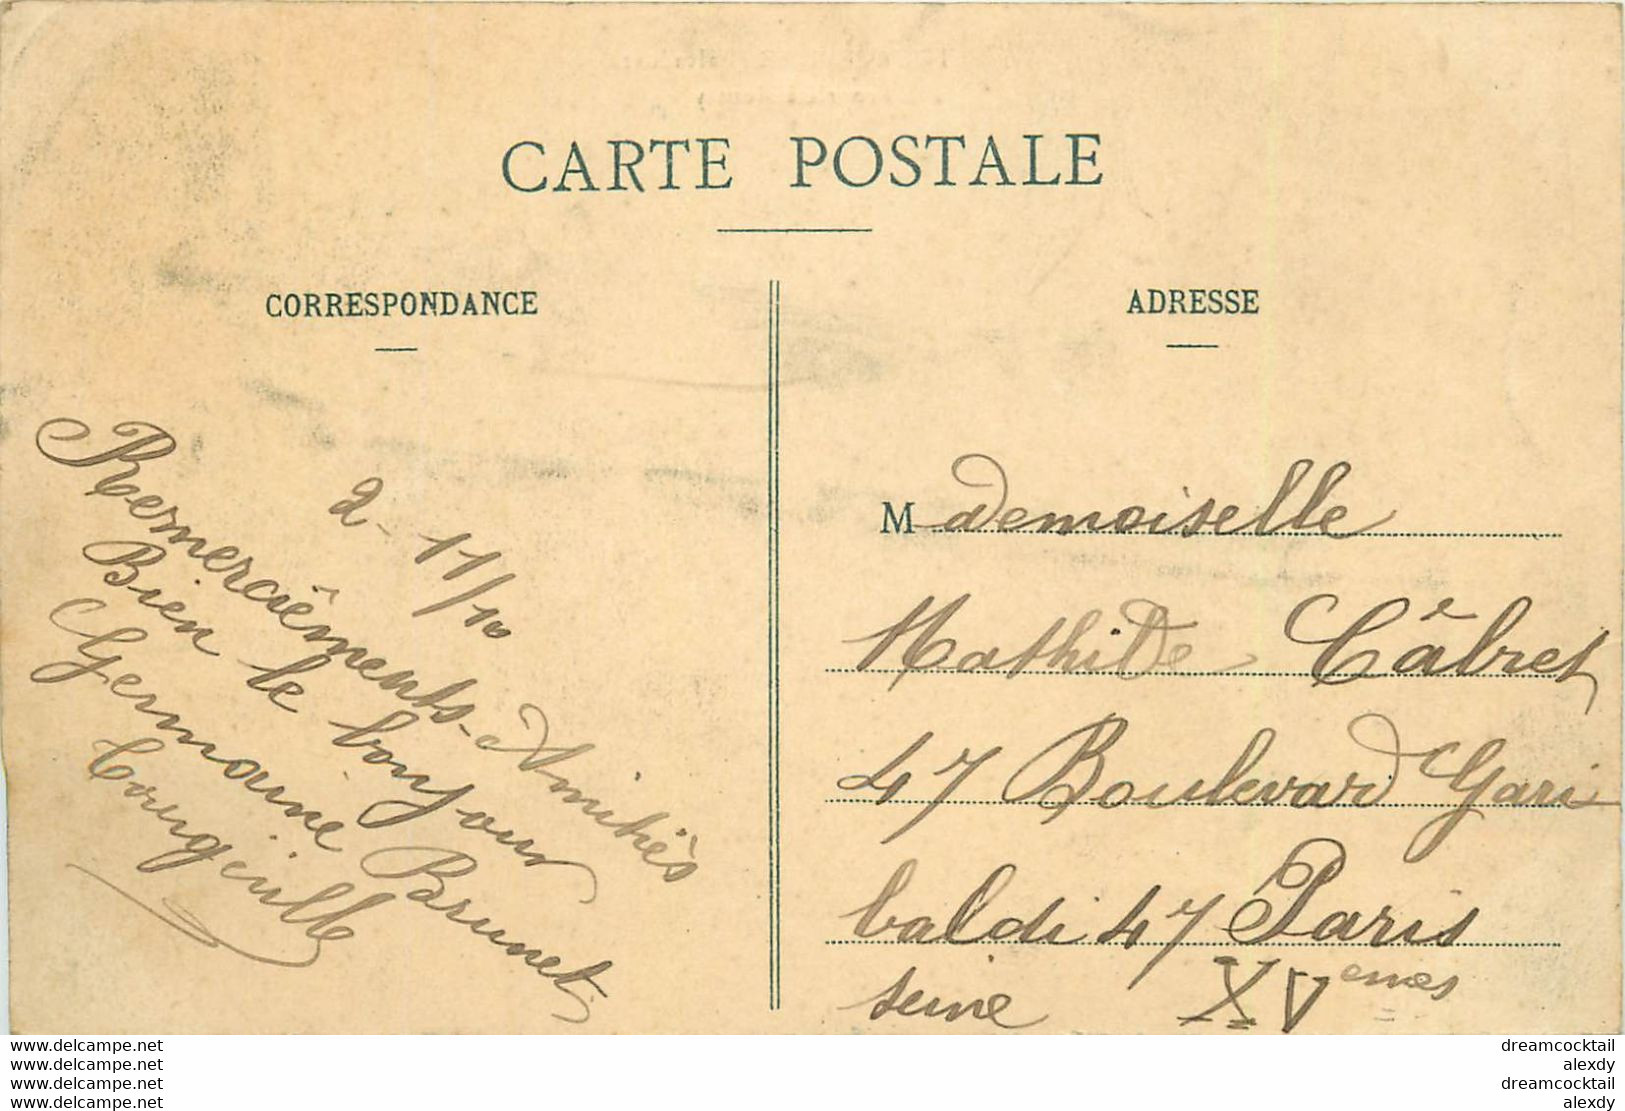 CARTE POSTALE
CORRESPONDANCE
2-11/10
Remerciêments-Amitiés
Bien le bonjour
Germaine Brunet
ADRESSE
Mademoiselle
Mathilde Câbret
47 Boulevard Gari
baldi 47 Paris
seine XVemes
www.delcampe.net
www.delcampe.net
www.delcampe.net
www.delcampe.net
dreamcocktail
alexdy
dreamcocktail
alexdy